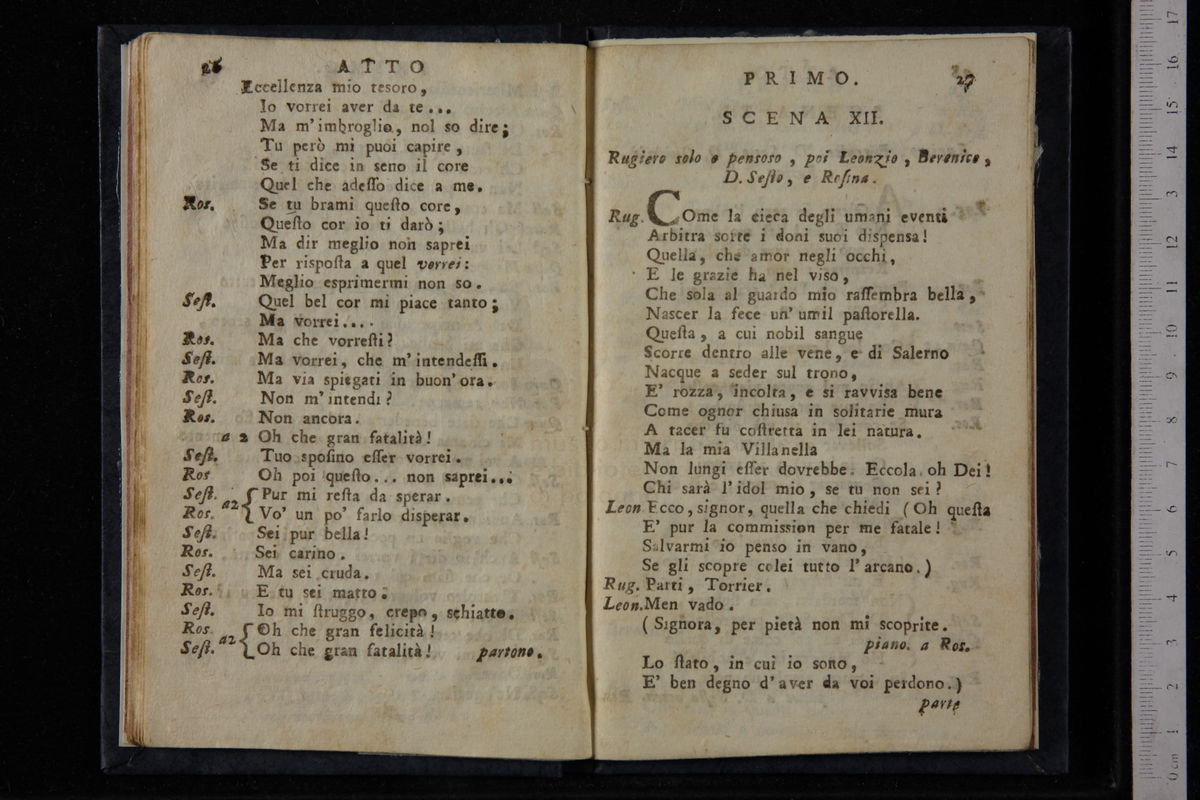 26 ATTO
Eccellenza mio tesoro,
Io vorrei aver da te...
Ma m'imbroglio, nol so dire;
Tu però mi puoi capire,
Se ti dice in seno il core
Quel che adeſſo dice a me.
Ros. Se tu brami queſto core,
Queſto cor io ti darò;
Ma dir meglio non saprei
Per riſpoſta a quel vorrei:
Meglio esprimermi non so.
Seſt. Quel bel cor mi piace tanto;
Ma vorrei....
Ros. Ma che vorreſti?
Seſt. Ma vorrei, che m'intendeſſi.
Ros. Ma via spiegati in buon'ora.
Seſt. Non m'intendi?
Ros. Non ancora.
a 2 Oh che gran fatalità!
Seſt. Tuo spoſino eſſer vorrei.
Ros Oh poi queſto... non saprei...
Seſt. a2 { Pur mi reſta da sperar.
Ros. Vo' un po' farlo disperar.
Seſt. Sei pur bella!
Ros. Sei carino.
Seſt. Ma sei cruda.
Ros. E tu sei matto.
Seſt. Io mi ſtruggo, crepo, schiatto.
Ros. a2 { Oh che gran felicità!
Seſt. Oh che gran fatalità! partono.
PRIMO. 27
SCENA XII.
Rugiero solo e pensoso, poi Leonzio, Berenice,
D. Seſto, e Roſina.
Rug. COme la cieca degli umani eventi
Arbitra sorte i doni suoi dispensa!
Quella, che amor negli occhi,
E le grazie ha nel viso,
Che sola al guardo mio raſſembra bella,
Nascer la fece un' umil paſtorella.
Queſta, a cui nobil sangue
Scorre dentro alle vene, e di Salerno
Nacque a seder sul trono,
E' rozza, incolta, e si ravvisa bene
Come ognor chiusa in solitarie mura
A tacer fu coſtretta in lei natura.
Ma la mia Villanella
Non lungi eſſer dovrebbe. Eccola oh Dei!
Chi sarà l'idol mio, se tu non sei?
Leon Ecco, signor, quella che chiedi (Oh queſta
E' pur la commission per me fatale!
Salvarmi io penso in vano,
Se gli scopre colei tutto l'arcano.)
Rug. Parti, Torrier.
Leon. Men vado.
(Signora, per pietà non mi scoprite.
piano. a Ros.
Lo ſtato, in cui io sono,
E' ben degno d'aver da voi perdono.)
parte